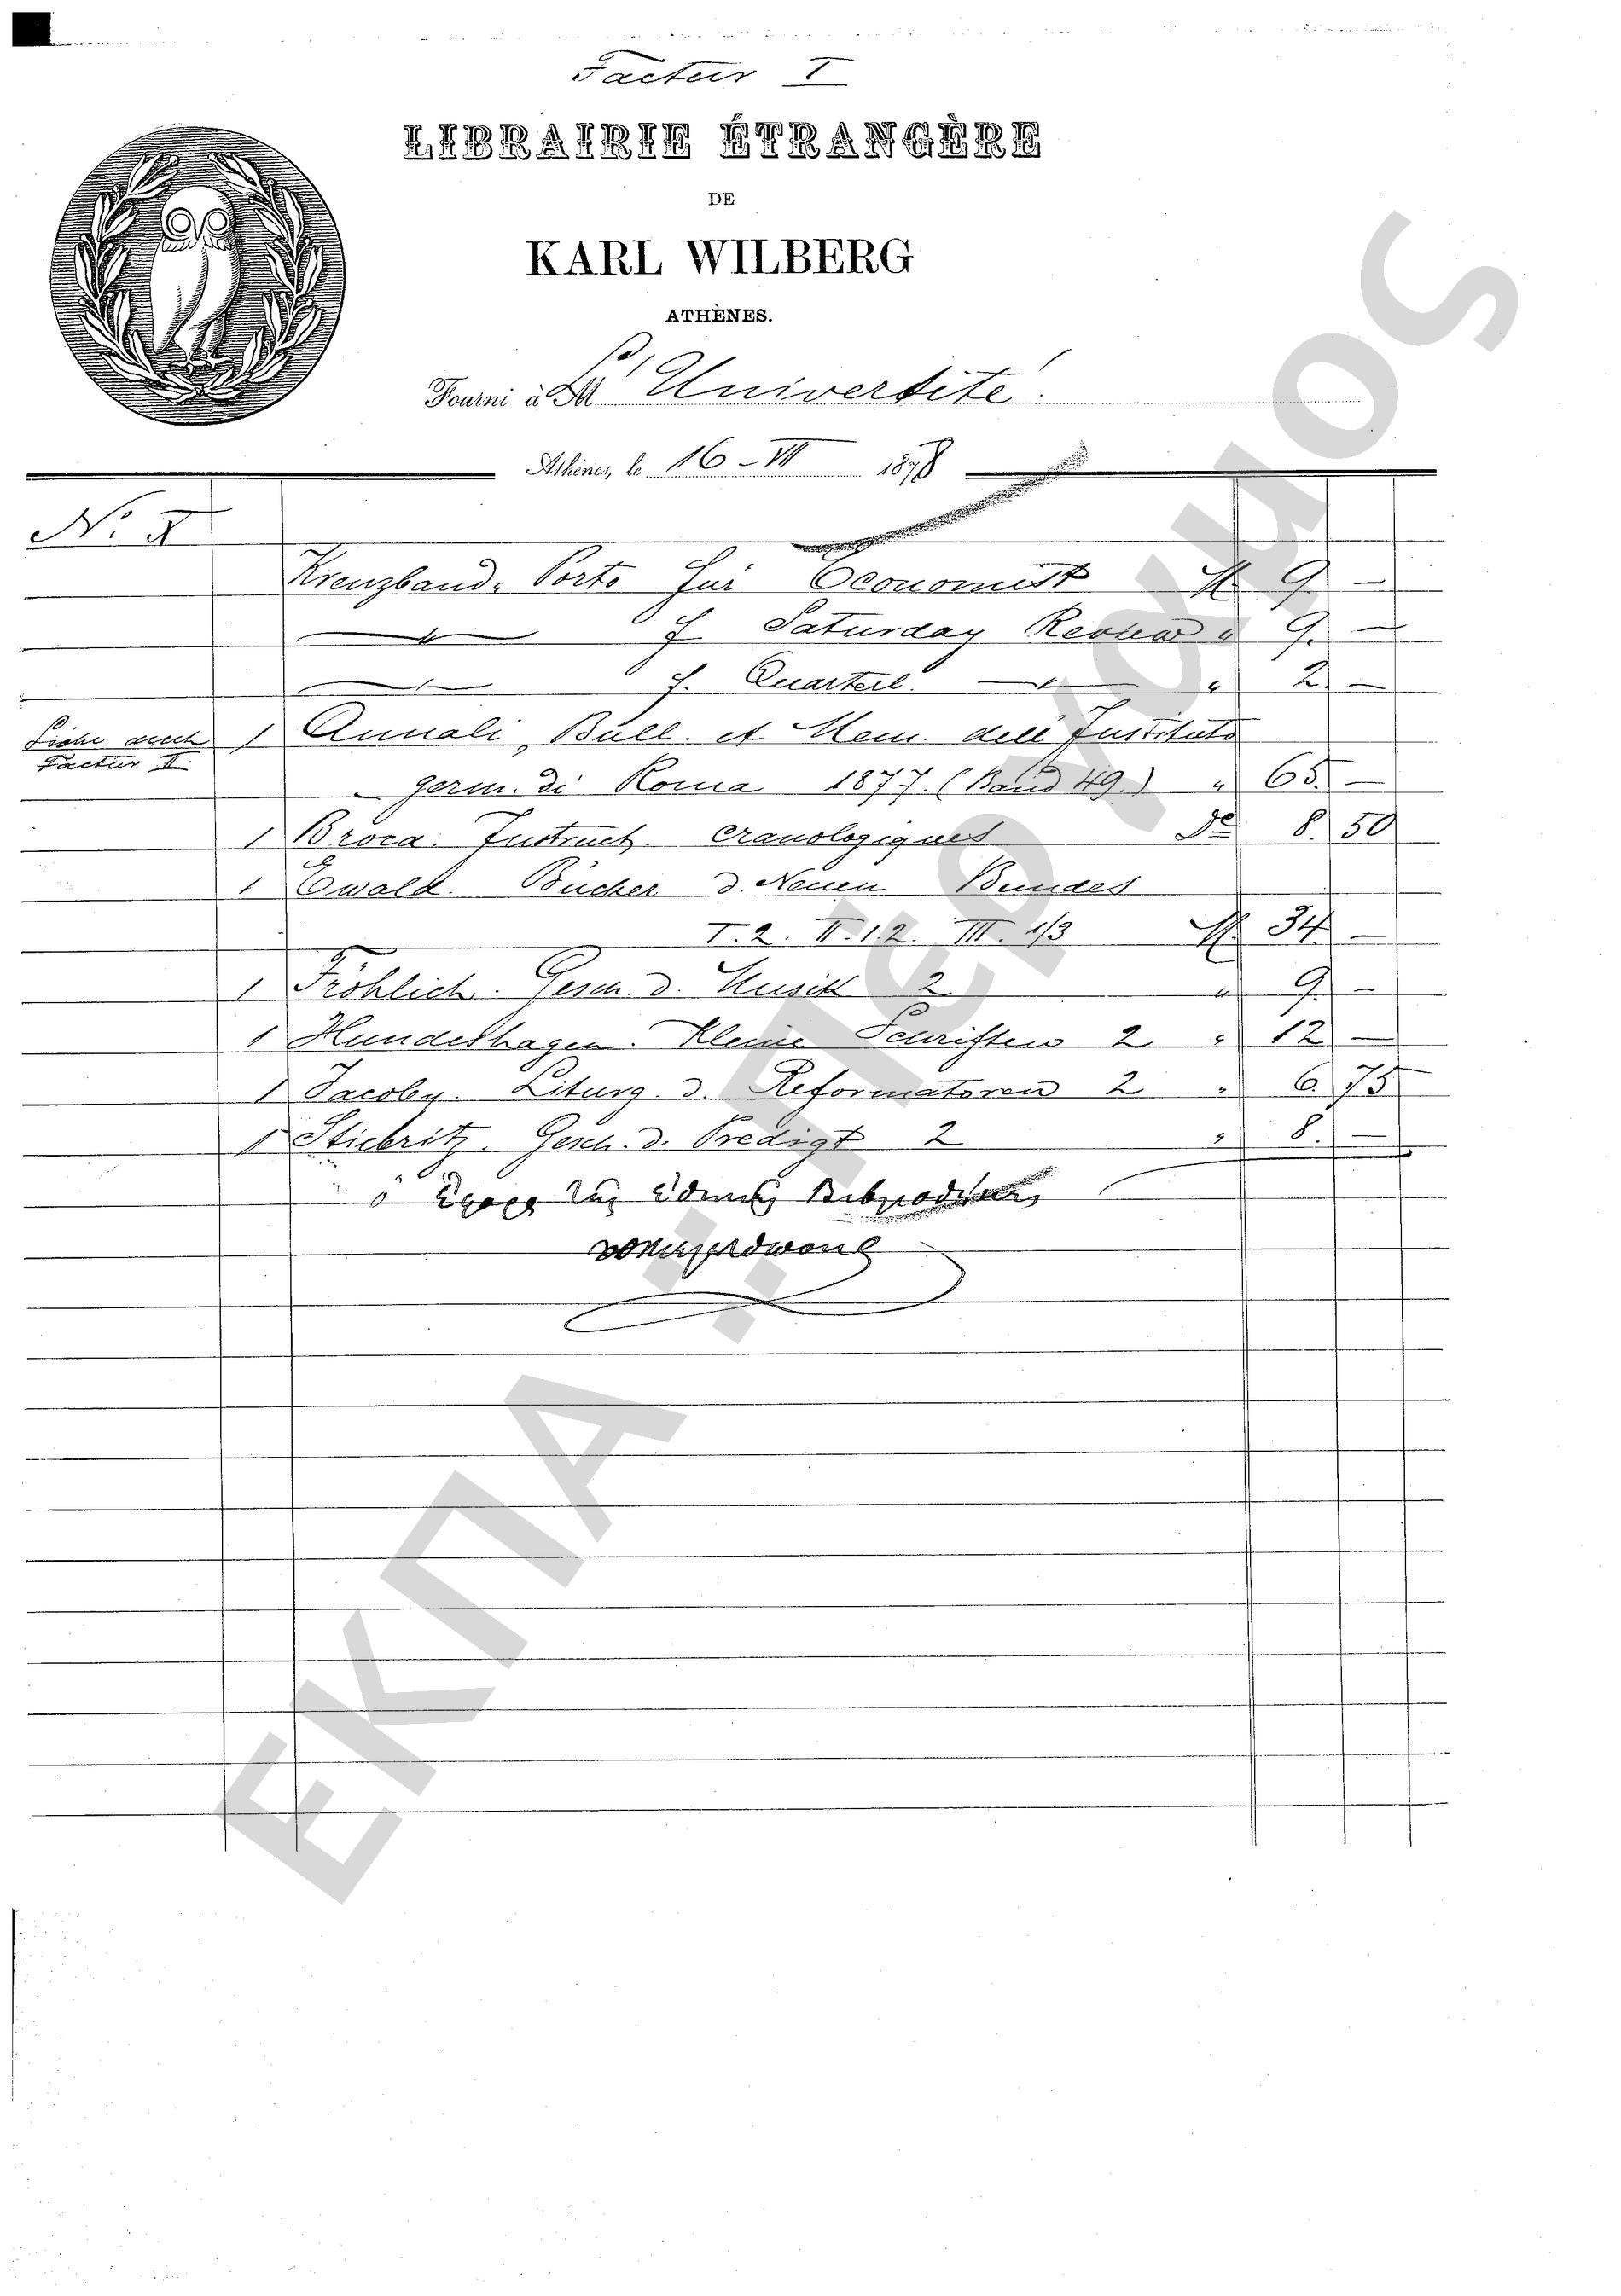 Factur I
LIBRAIRIE ÉTRANGÈRE
DE
KARL WILBERG
ATHÈNES.
Fourni à L'Université.
Athènes, le 16-VII 1878
No. I
Kreuzband-Porto für Economist M 9. —
f. Saturday Review " 9. —
f. Quarterl. " 2. —
Siehe auch 1 Annali, Bull. et Mem. dell Instituto
Factur II.
germ. di Roma 1877. (Band 49.) " 65. —
1 Broca. Instruct. cranologiques 8. 50
1 Ewald. Bücher d. Neuen Bundes
I. 2. II. 1.2. III. 1/3 M. 34. —
1 Fröhlich. Gesch. d. Musik 2 " 9. —
1 Hundeshagen. Kleine Schriften 2 " 12 —
1 Jacoby. Liturg. d. Reformatoren 2 " 6. 75
1 Stiebritz. Gesch. d. Predigt 2 " 8. —
ὁ Ἔφορος τῆς Ἐθνικῆς Βιβλιοθήκης
ΕΚΠΑ "Περγαμος